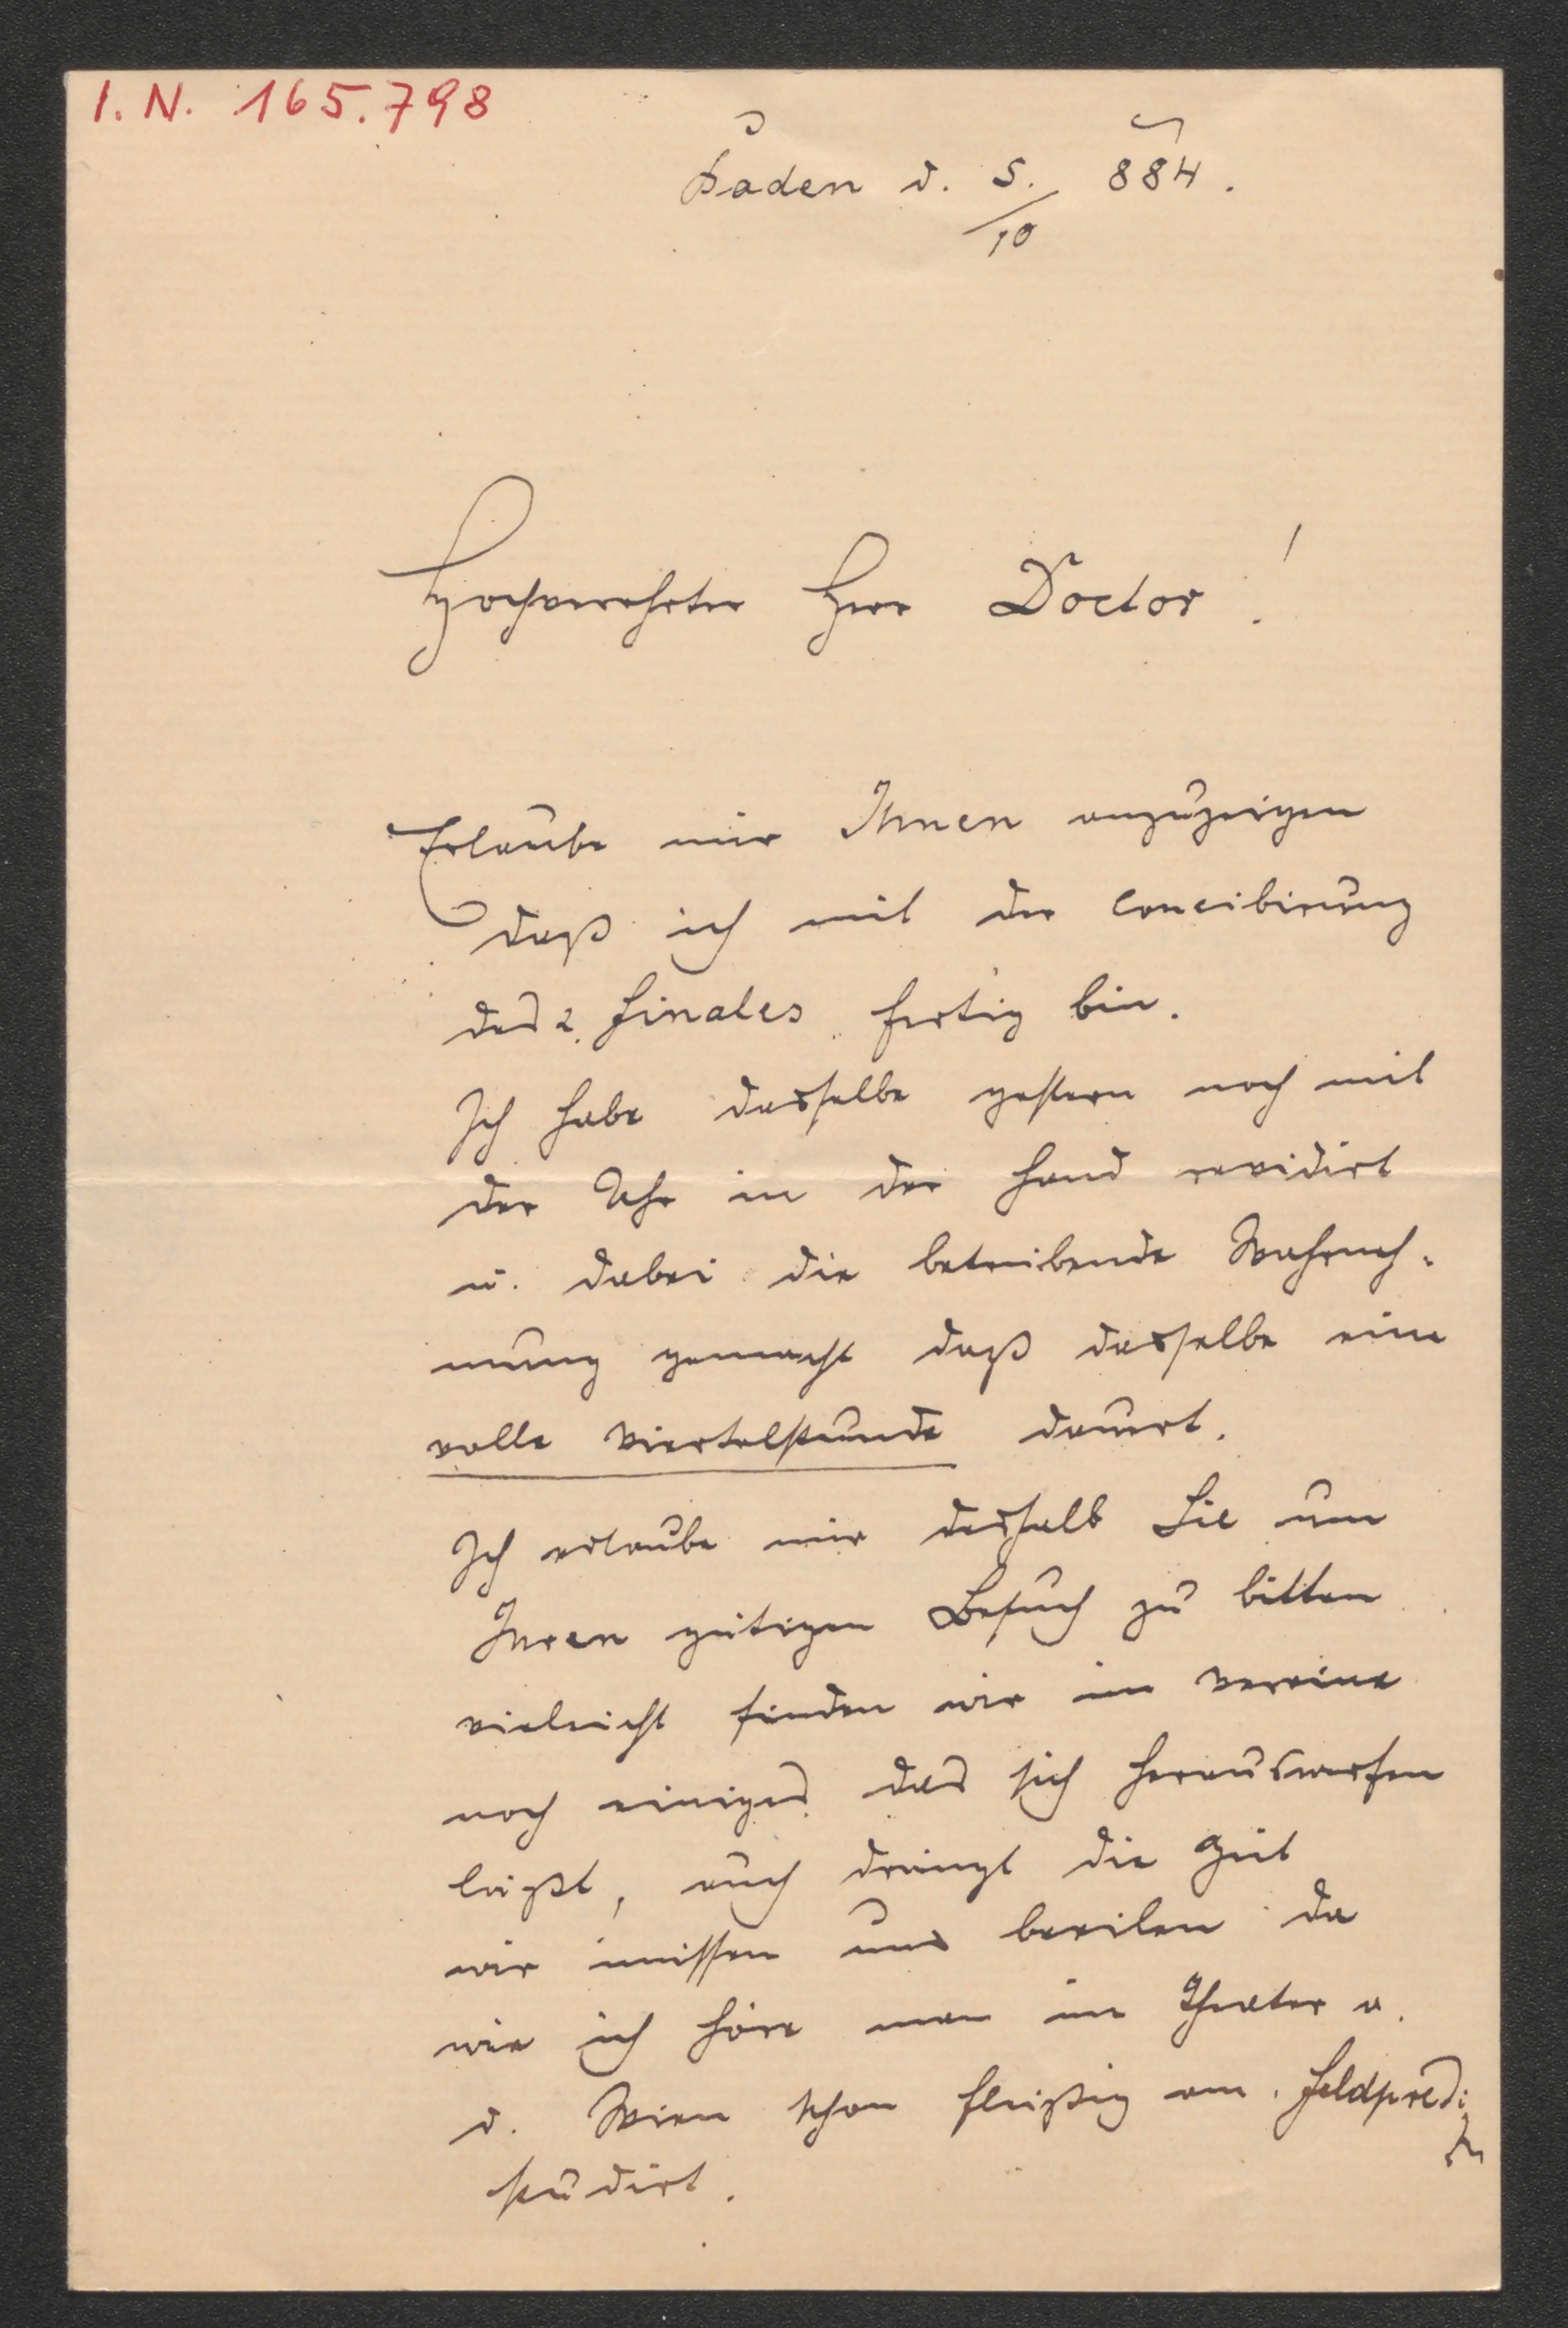 I. N. 165.798
Baden d. 5./10 884.
Hochverehrter Herr Doctor!
Erlaube mir Ihnen anzuzeigen
daß ich mit der Concibirung
des 2. Finales fertig bin.
Ich habe dasselbe gestern noch mit
der Uhr in der Hand revidirt
u. dabei die betrübende Wahrneh-
mung gemacht daß dasselbe eine
volle Viertelstunde dauert.
Ich erlaube mir deshalb Sie um
Ihren gütigen Besuch zu bitten
vieleicht finden wir im Vereine
noch einiges das sich herauswerfen
läßt, auch drängt die Zeit
wir müssen uns beeilen da
wie ich höre man im Theater a.
d. Wien schon fleißig am Feldpredi
studirt.